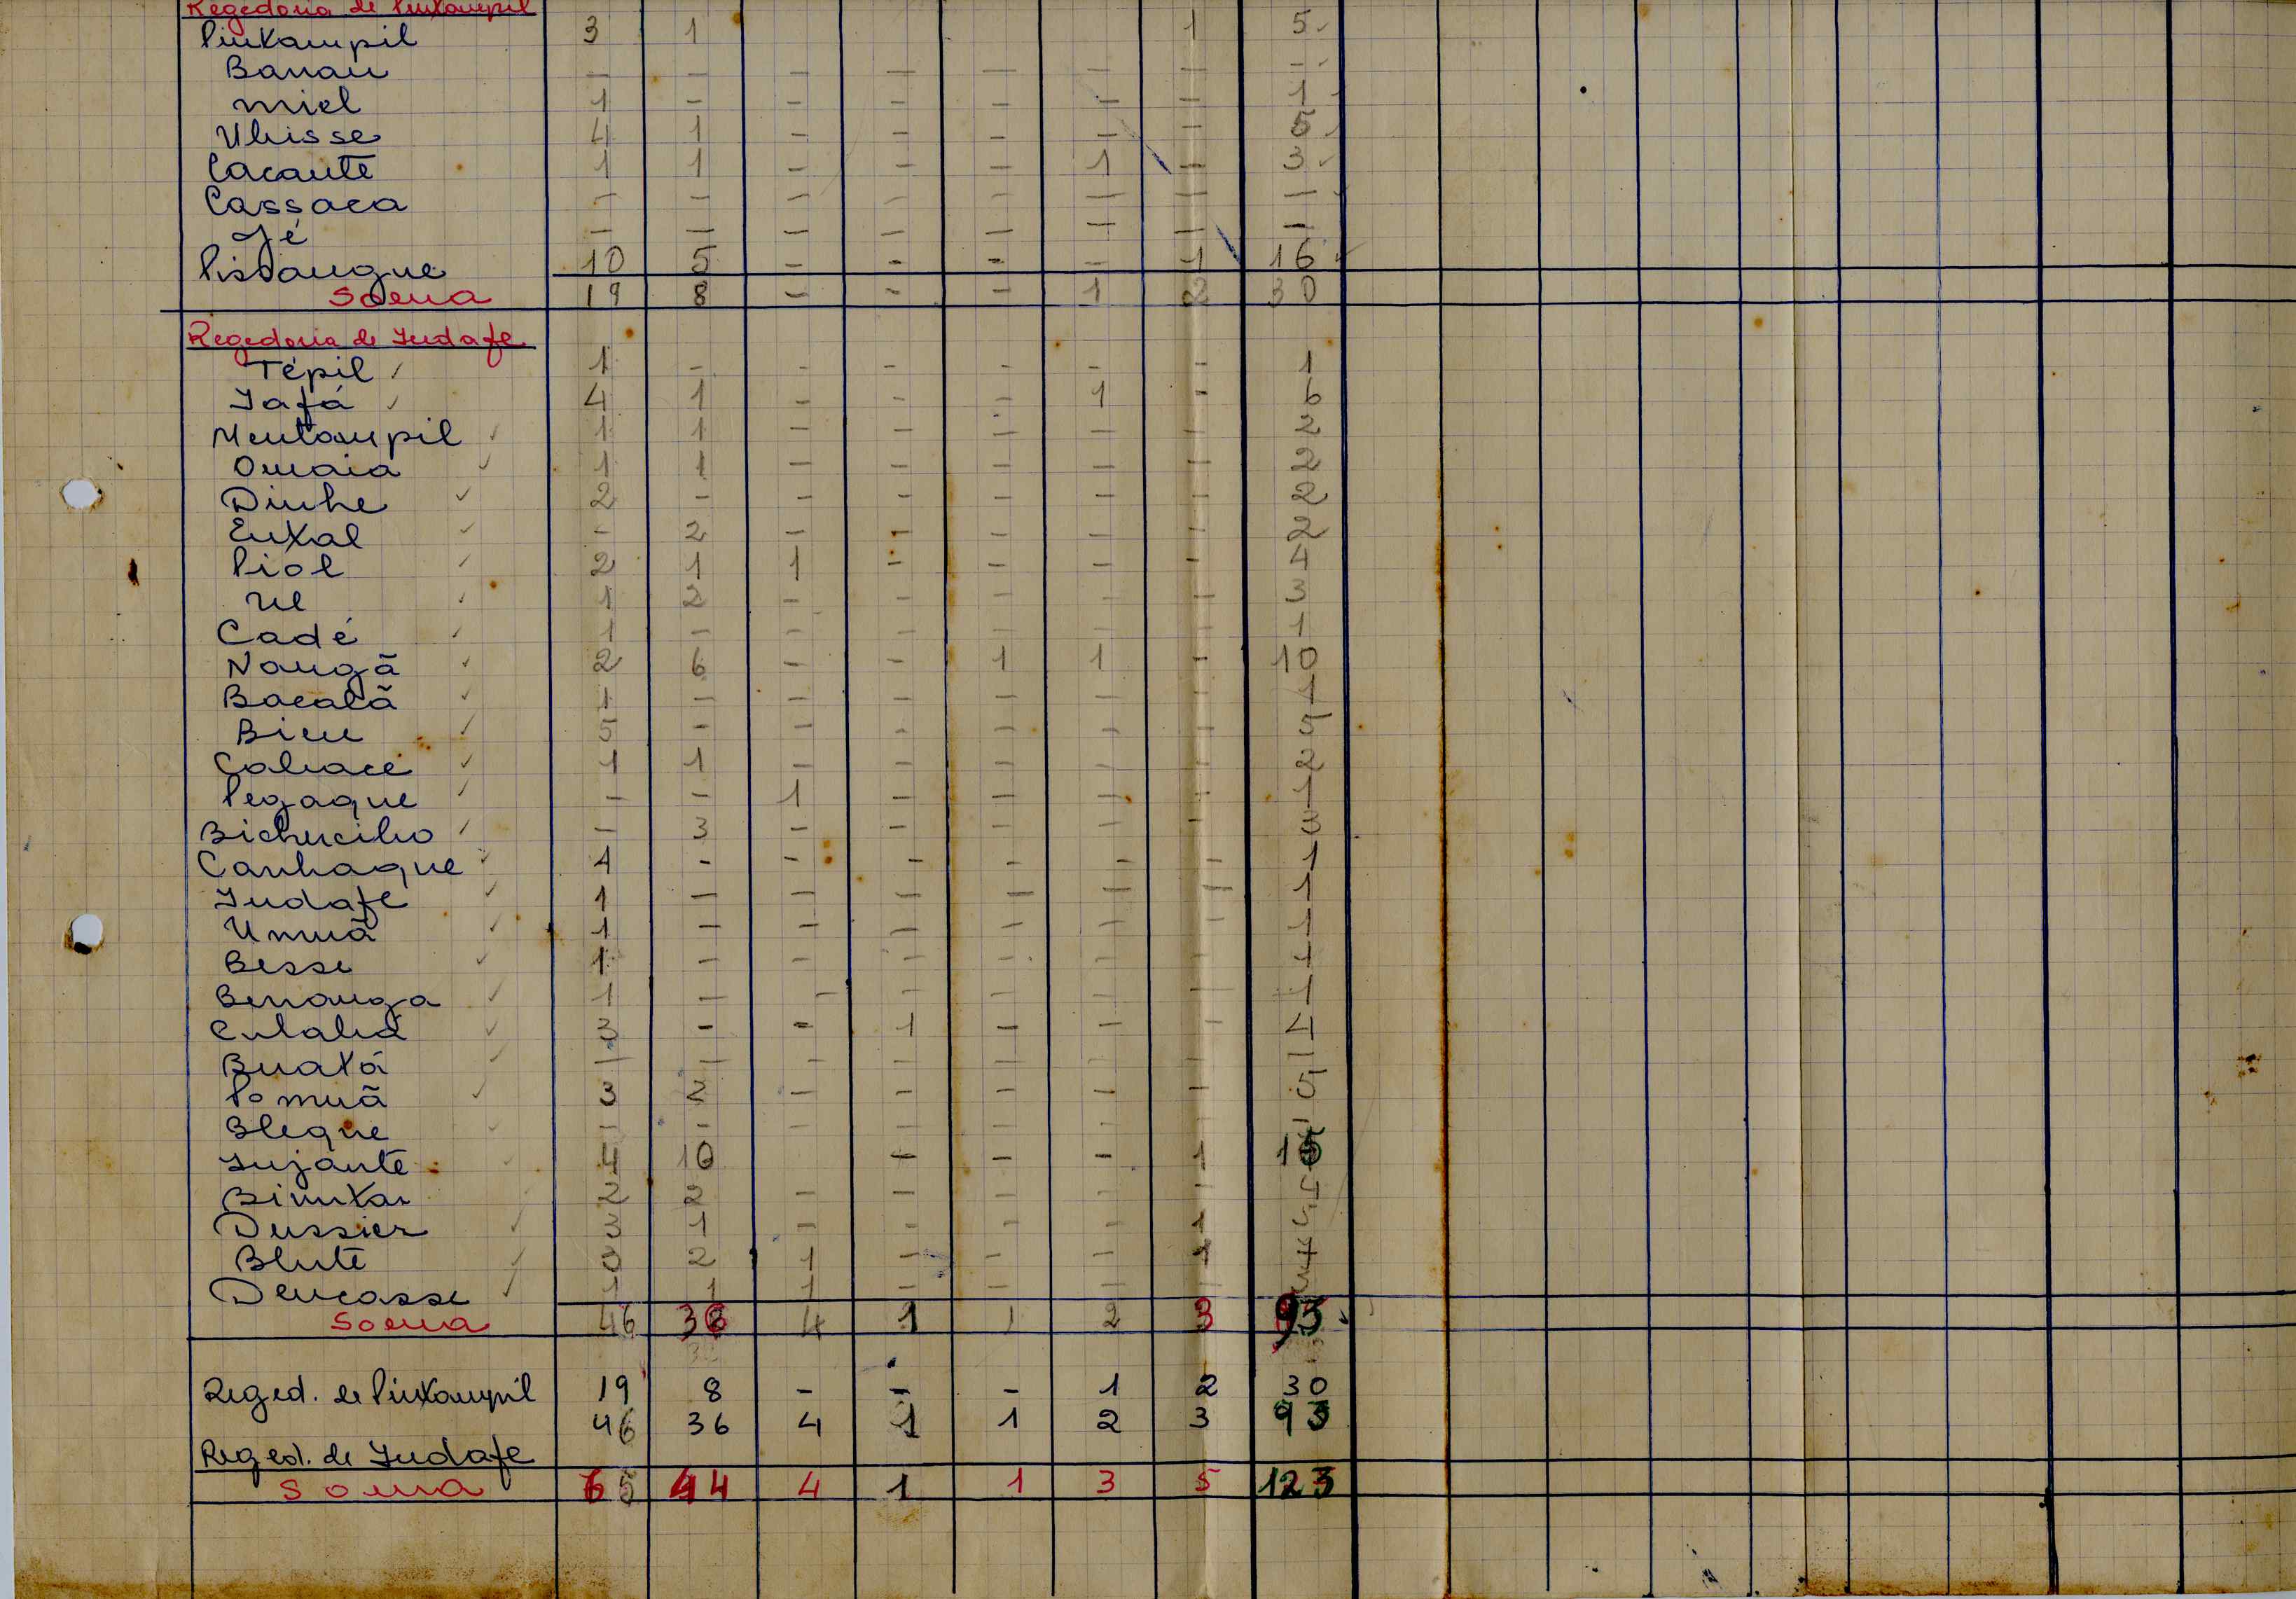 Regedoria de Pintampil
Pintampil 3 1 1 5
Banau — — — — — — — —
Miel 1 — — — — — — 1
Uhisse 4 1 — — — — — 5
Cacante 1 1 — — — 1 — 3
Cassaca — — — — — — — —
Jé — — — — — — — —
Pissangue 10 5 — — — — 1 16
Soma 19 8 — — — 1 2 30
Regedoria de Indafe
Tépil 1 — — — — — — 1
Iafá 4 1 — — — 1 — 6
Mentampil 1 1 — — — — — 2
Omaia 1 1 — — — — — 2
Dinhe 2 — — — — — — 2
Enxal — 2 — — — — — 2
Piol 2 1 1 — — — — 4
Ul 1 2 — — — — — 3
Cadé 1 — — — — — — 1
Nangã 2 6 — — 1 1 — 10
Bacalã 1 — — — — — — 1
Bieu 5 — — — — — — 5
Calface 1 1 — — — — — 2
Pegaque — — 1 — — — — 1
— 3 — — — — — 3
Canhaque 1 — — — — — — 1
Indafe 1 — — — — — — 1
Umuã 1 — — — — — — 1
Besse 1 — — — — — — 1
Benanga 1 — — — — — — 1
3 — — 1 — — — 4
Buaxá — — — — — — — —
Pomuã 3 2 — — — — — 5
Bleque — — — — — — — —
Injante 4 10 — — — 1 15
Binuxar 2 2 — — — — — 4
Dussier 3 1 — — — — 1 5
Blute 3 2 1 — — — 1 7
Dencasse 1 1 1 — — — — 3
Soma 46 36 4 1 1 2 3 93
Reged. de Pintampil 19 8 — — — 1 2 30
Reged. de Indafe 46 36 4 1 1 2 3 93
Soma 65 44 4 1 1 3 5 123